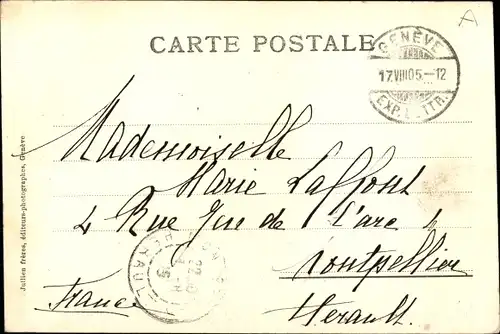 A
CARTE POSTALE
GENÈVE
17.VIII05.–12
EXP. LETTR.
Mademoiselle
Marie Laffont
4 Rue Jeu de L'arc
Montpellier
France Herault.
HERAULT
Jullien frères, éditeurs-photographes, Genève